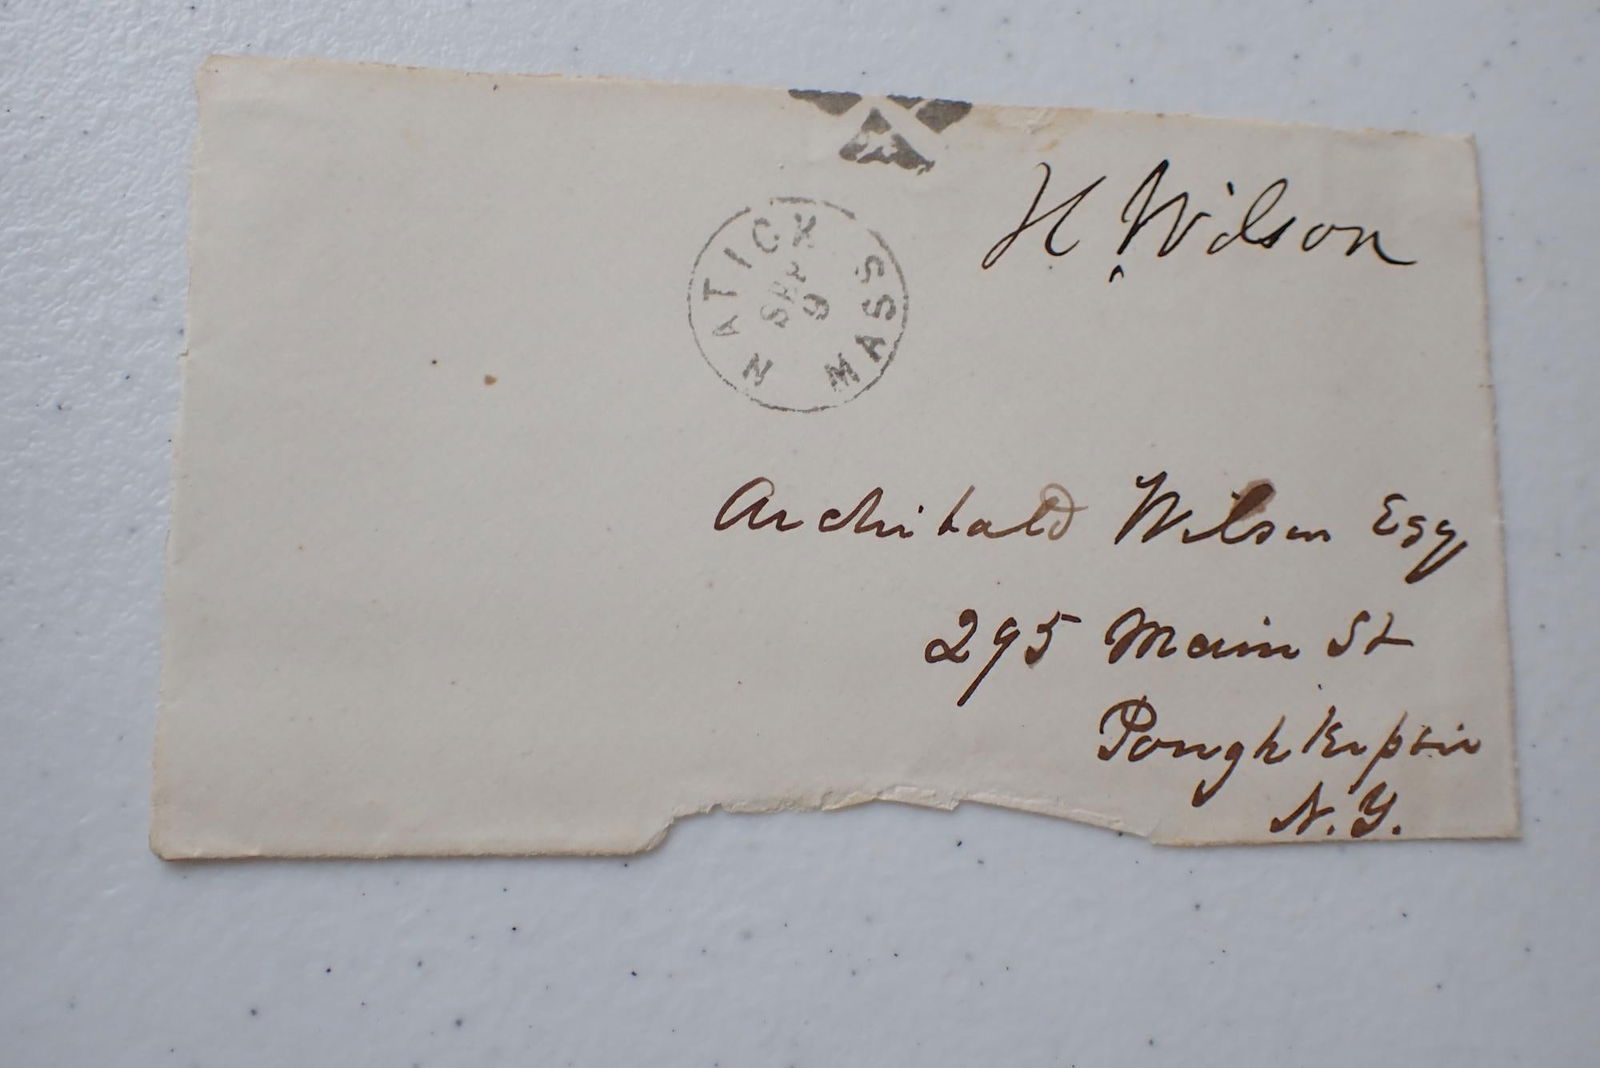 H. Wilson
NATICK MASS
SEP
9
Archibald Wilson Esq
295 Main St
Poughkepsie
N.Y.